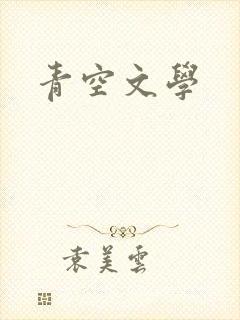 青空文學
袁美雲